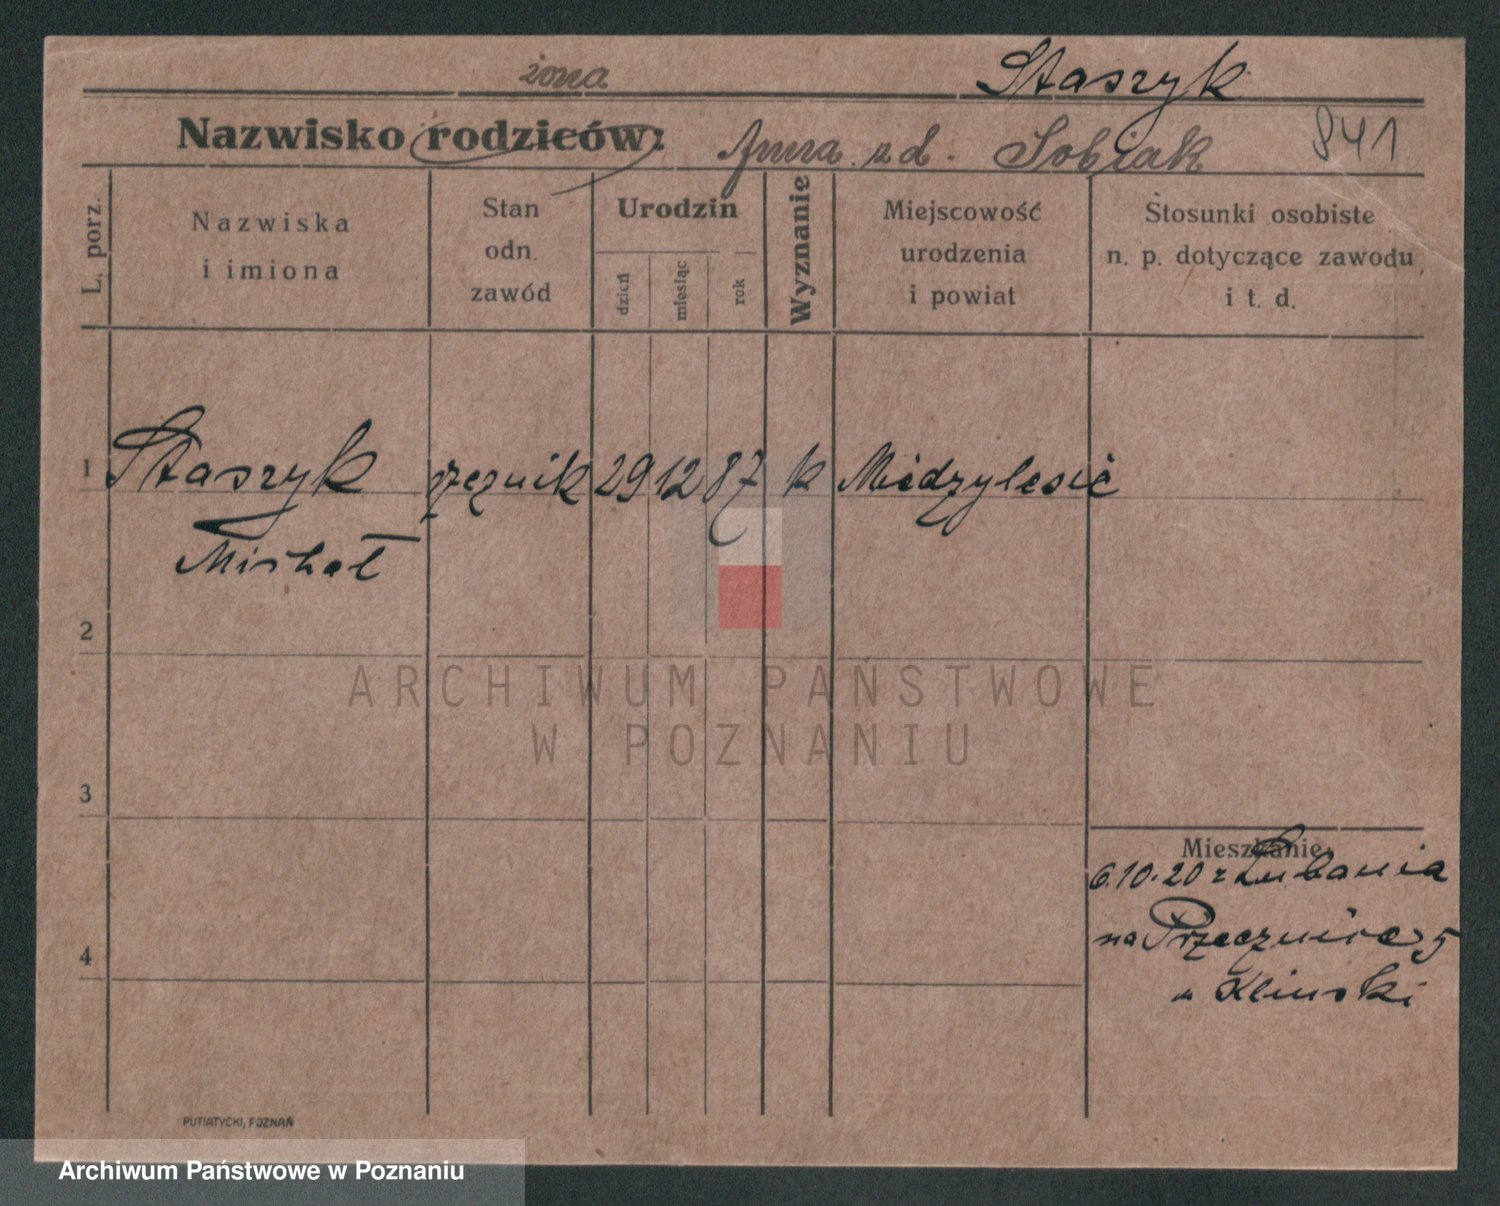 żona
Staszyk
Nazwisko rodziców:
Anna z d. Sobiak
841
L. porz.
Nazwiska
i imiona
Stan
odn.
zawód
Urodzin
dzień
miesiąc
rok
Wyznanie
Miejscowość
urodzenia
i powiat
Stosunki osobiste
n. p. dotyczące zawodu
i t. d.
1 Staszyk rzeźnik 29 12 87 k
Michał
2
3
4
Mieszkanie:
6.10.20 z Lubania
na Przecznica 5
Klinski
PUTIATYCKI, POZNAŃ
ARCHIWUM PAŃSTWOWE
W POZNANIU
Archiwum Państwowe w Poznaniu